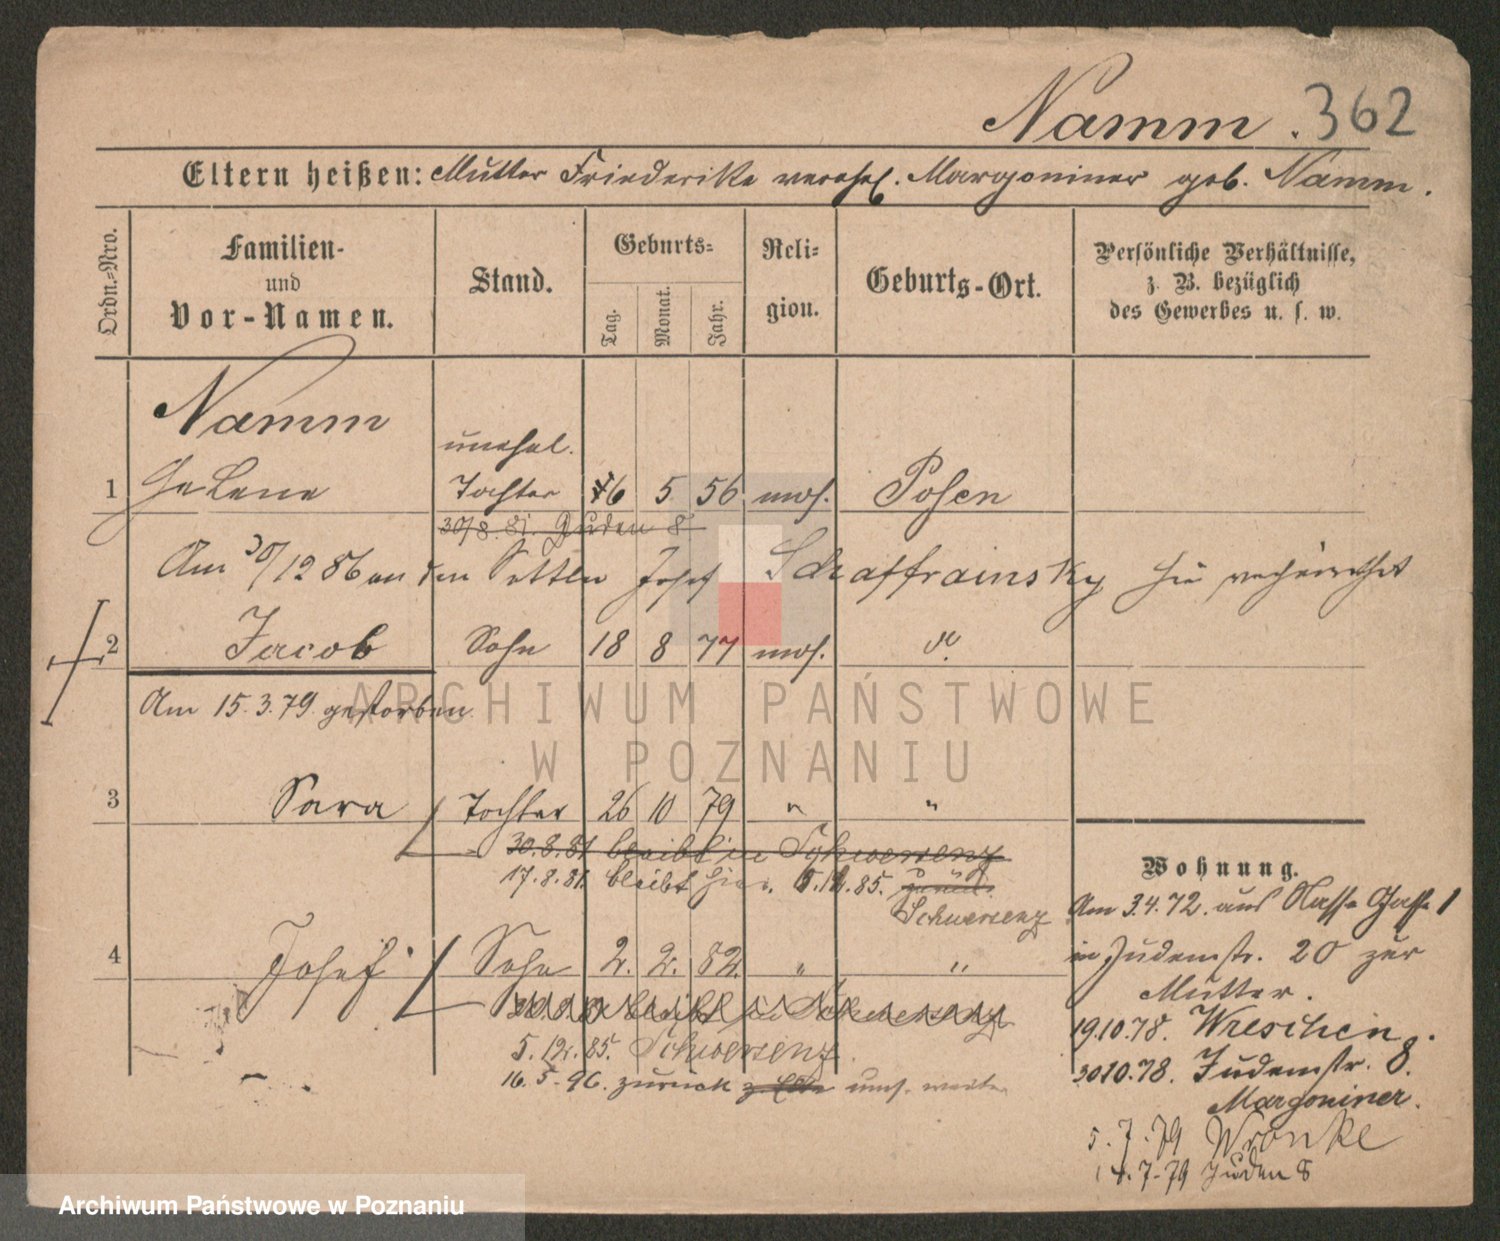 Namm. 362
Eltern heißen: Mutter Friederike verehel. Margoniner geb. Namm.
Ordn.-Nro.
Familien- und Vor-Namen.
Stand.
Geburts-
Tag. Monat. Jahr.
Reli-gion.
Geburts-Ort.
Persönliche Verhältnisse, z. B. bezüglich des Gewerbes u. s. w.
Namm
unehel.
1 Helene Tochter 16 5 56 mos. Posen
30/8. 81. Juden 8
Am 30/12 86 an den Josef Schaffrainsky hie verheirathet
2 Jacob Sohn 18 8 77 mos. do.
Am 15.3.79 gestorben
3 Sara Tochter 26 10 79 " "
30.8.81 bleibt in Schwersenz
17.8.81. bleibt hier. 5.12.85. zurück
Schwersenz
4 Josef Sohn 2. 2. 82. " "
bleibt in Schwersenz
5.12.85. Schwersenz
16.5.96. zurück umf. weiter
Wohnung.
Am 3.4.72. aus Nasse Gasse 1
in Judenstr. 20 zur
Mutter.
19.10.78. Wreschen.
30.10.78. Judenstr. 8.
Margoniner.
5.7.79 Wronke
14.7.79 Juden 8
ARCHIWUM PAŃSTWOWE
W POZNANIU
Archiwum Państwowe w Poznaniu